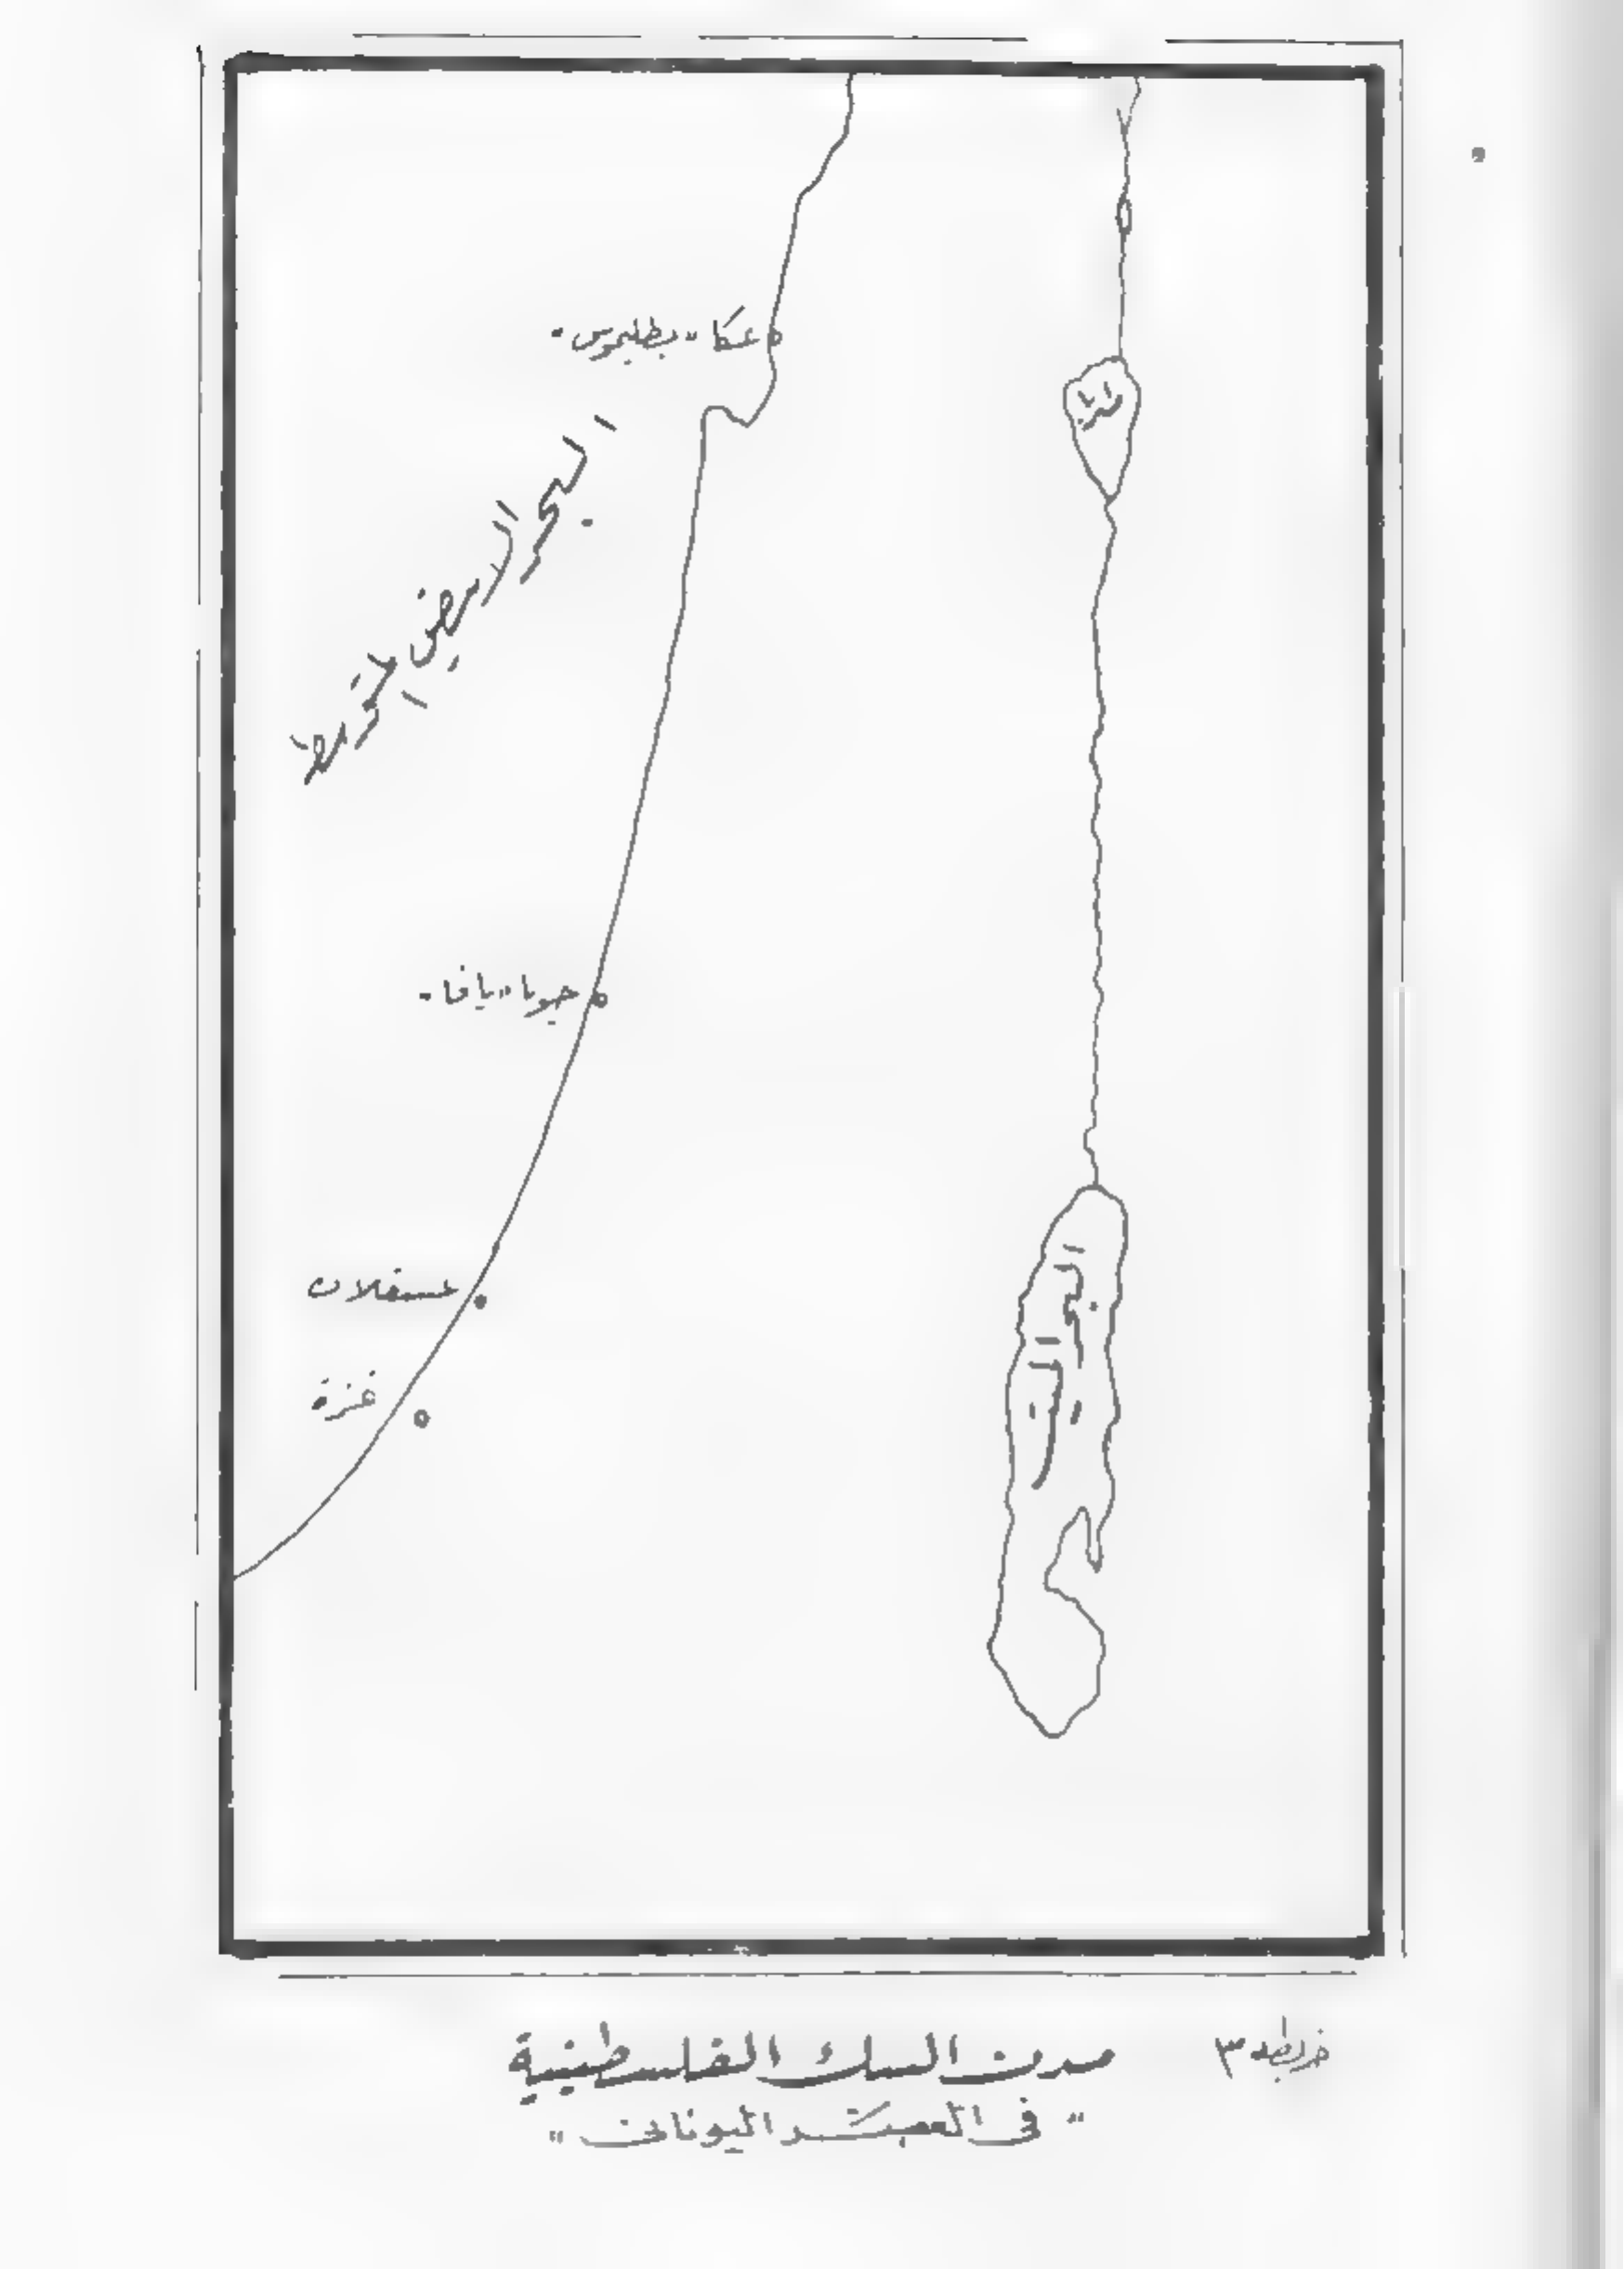 عكا "بطليموس"
البحر الابيض المتوسط
طبريا
جوبا "يافا"
عسقلان
غزة
البحر الميت
خريطة ٣
مدن السك الفلسطينية
"في العصر اليوناني"